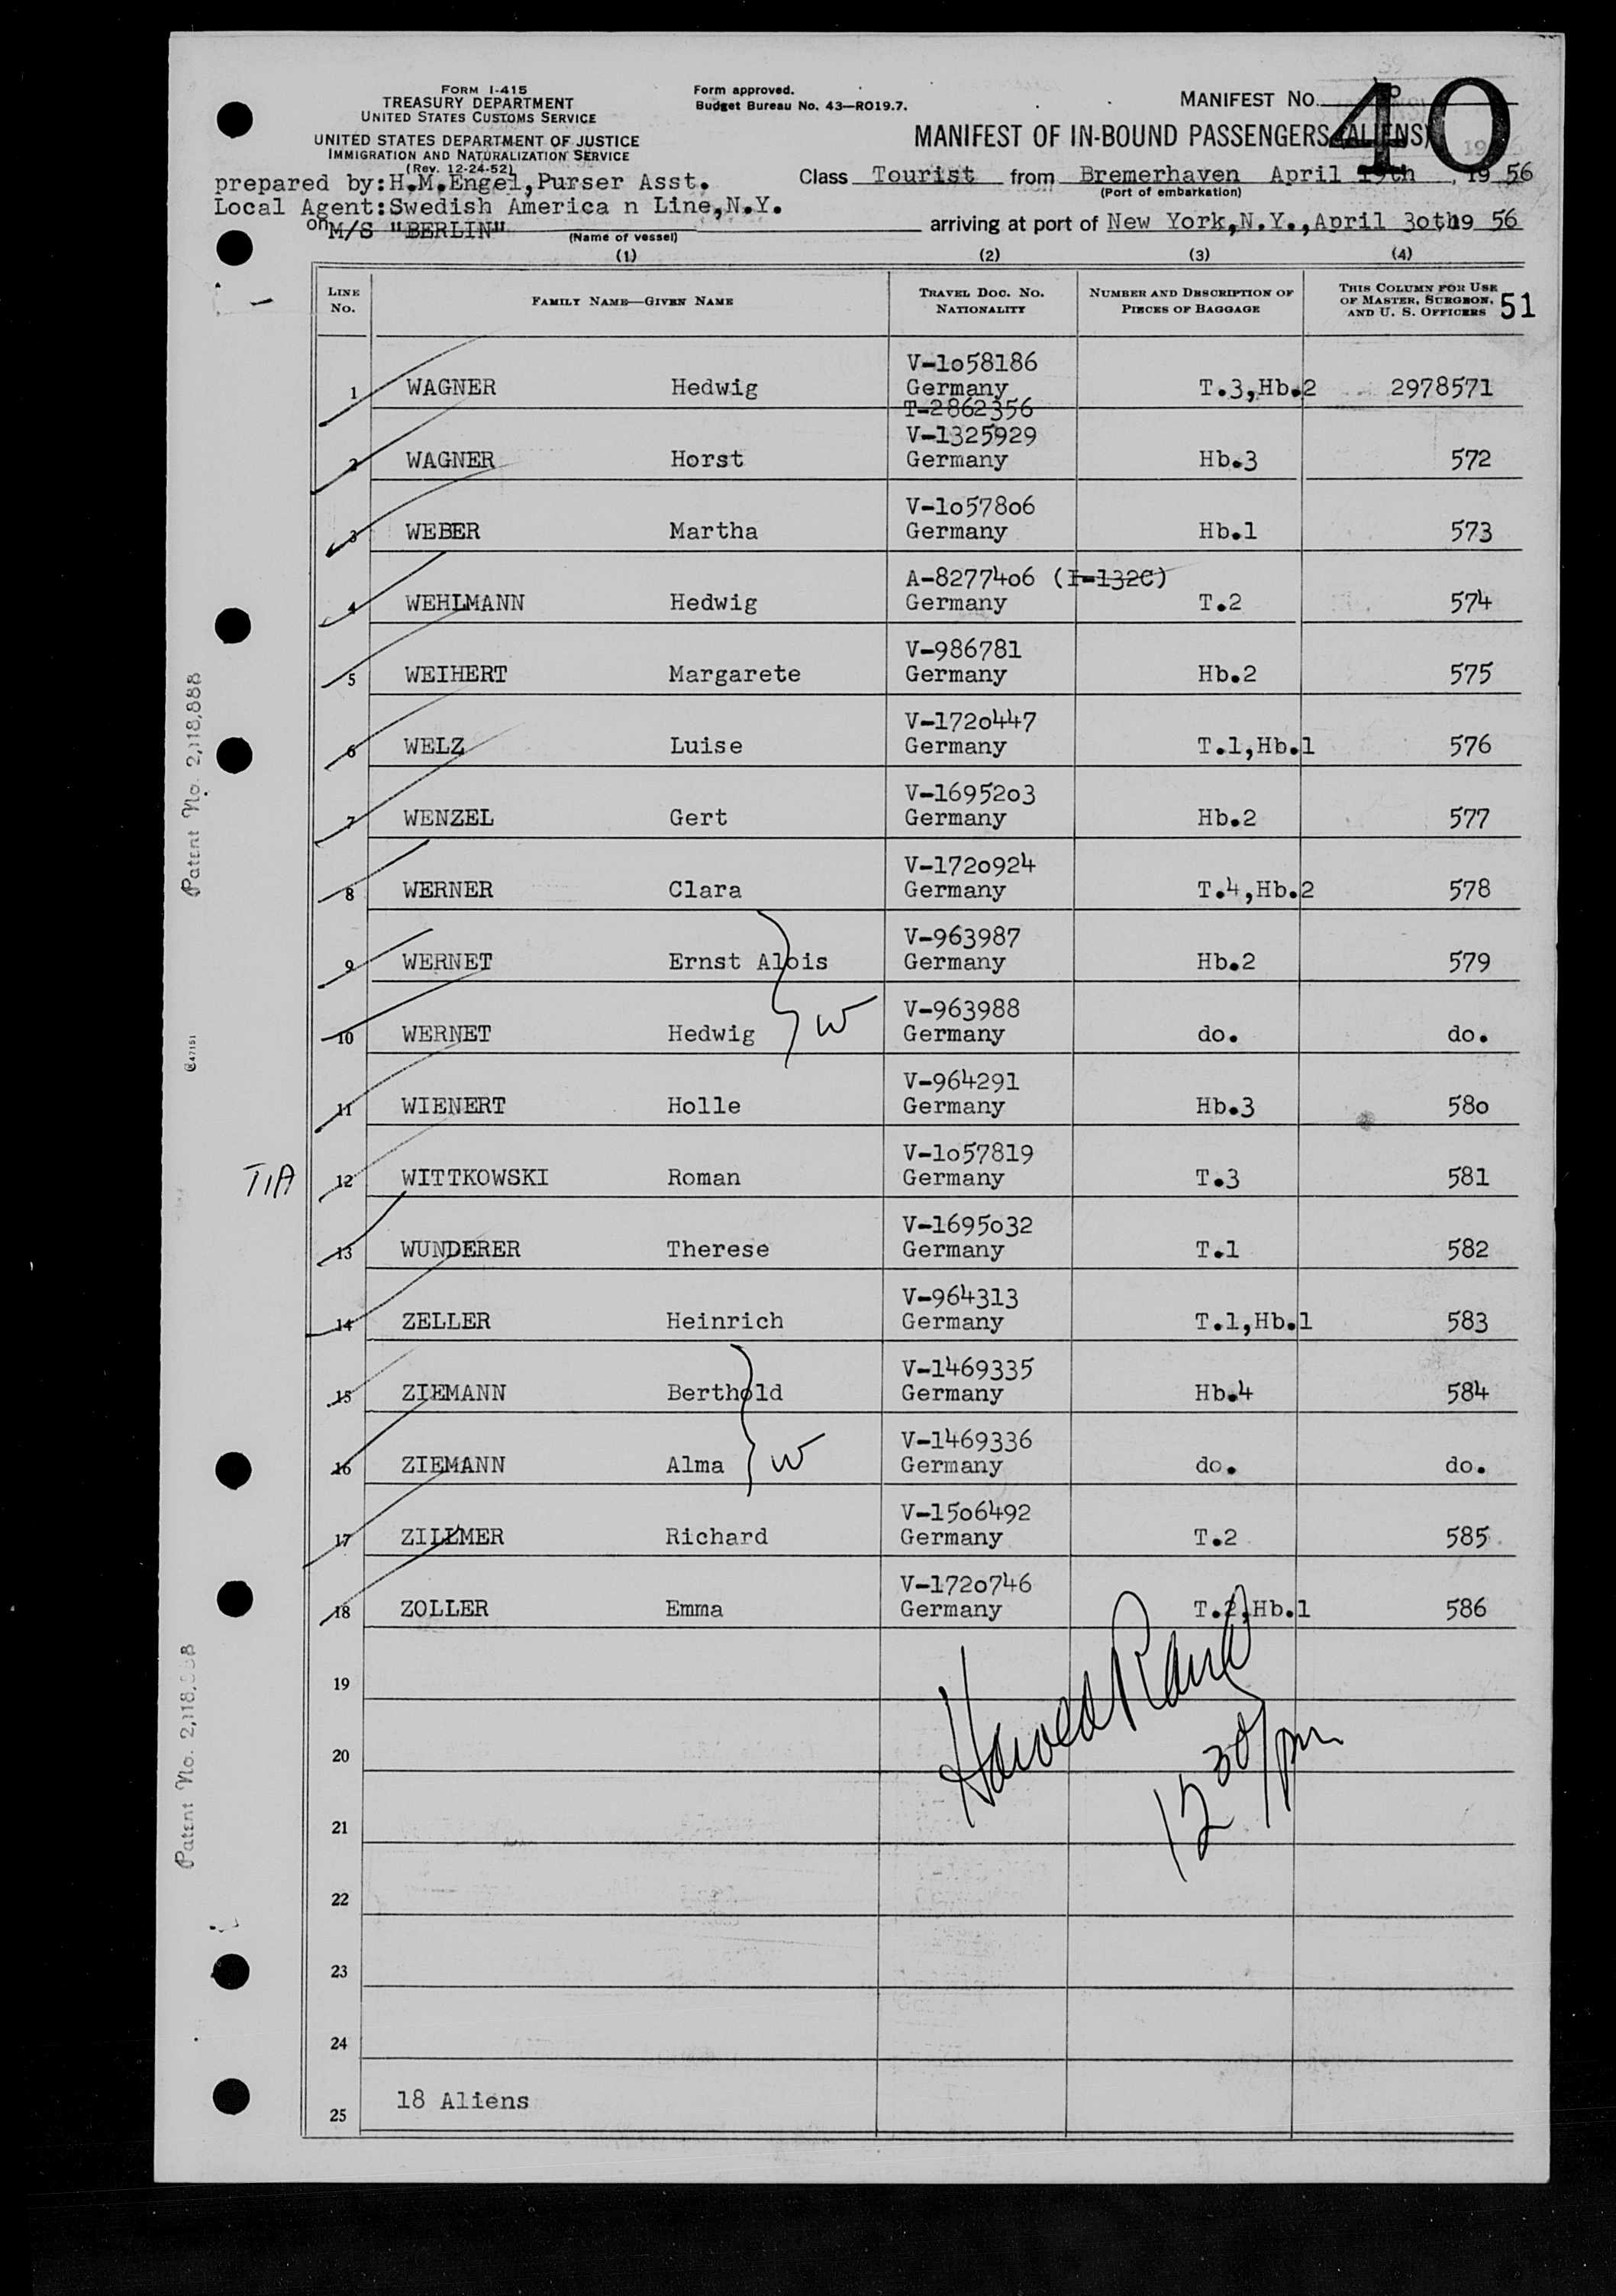 FORM I-415
TREASURY DEPARTMENT
UNITED STATES CUSTOMS SERVICE
UNITED STATES DEPARTMENT OF JUSTICE
IMMIGRATION AND NATURALIZATION SERVICE
(Rev. 12-24-52)
Form approved.
Budget Bureau No. 43—RO19.7.
MANIFEST NO.
40
MANIFEST OF IN-BOUND PASSENGERS (ALIENS)
prepared by:H.M.Engel,Purser Asst.
Class Tourist from Bremerhaven April 19th, 19 56
(Port of embarkation)
Local Agent:Swedish America n Line,N.Y.
on M/S "BERLIN"
(Name of vessel)
arriving at port of New York,N.Y.,April 3oth 19 56
(1) (2) (3) (4)
LINE NO. FAMILY NAME—GIVEN NAME TRAVEL DOC. NO. NATIONALITY NUMBER AND DESCRIPTION OF PIECES OF BAGGAGE THIS COLUMN FOR USE OF MASTER, SURGEON, AND U. S. OFFICERS 51
V-1o58186
1 WAGNER Hedwig Germany T.3,Hb.2 2978571
T-2862356
V-1325929
2 WAGNER Horst Germany Hb.3 572
V-1o578o6
3 WEBER Martha Germany Hb.1 573
A-82774o6 (I-132C)
4 WEHLMANN Hedwig Germany T.2 574
V-986781
5 WEIHERT Margarete Germany Hb.2 575
V-172o447
6 WELZ Luise Germany T.1,Hb.1 576
V-16952o3
7 WENZEL Gert Germany Hb.2 577
V-172o924
8 WERNER Clara Germany T.4,Hb.2 578
V-963987
9 WERNET Ernst Alois Germany Hb.2 579
V-963988
10 WERNET Hedwig W Germany do. do.
V-964291
11 WIENERT Holle Germany Hb.3 58o
V-1o57819
TIA 12 WITTKOWSKI Roman Germany T.3 581
V-1695o32
13 WUNDERER Therese Germany T.1 582
V-964313
14 ZELLER Heinrich Germany T.1,Hb.1 583
V-1469335
15 ZIEMANN Berthold Germany Hb.4 584
V-1469336
16 ZIEMANN Alma W Germany do. do.
V-15o6492
17 ZILLMER Richard Germany T.2 585
V-172o746
18 ZOLLER Emma Germany T.2,Hb.1 586
19
Harold Rand
20
12 30/pm
21
22
23
24
25 18 Aliens
Patent No. 2,118,888
C47151
Patent No. 2,118,888